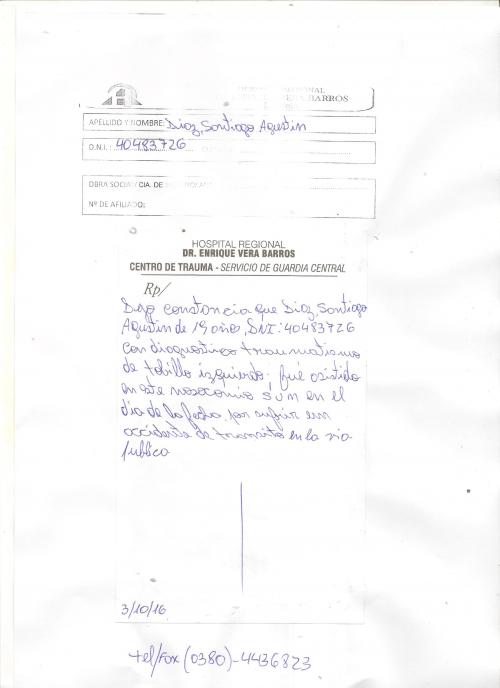 HOSPITAL REGIONAL
DR. ENRIQUE VERA BARROS
APELLIDO Y NOMBRE: Diaz, Santiago Agustin
D.N.I.: 40483726
OBRA SOCIAL/CIA. DE
Nº DE AFILIADO:
HOSPITAL REGIONAL
DR. ENRIQUE VERA BARROS
CENTRO DE TRAUMA - SERVICIO DE GUARDIA CENTRAL
Rp/
Dejo constancia que Diaz, Santiago
Agustin de 19 años, DNI: 40483726
con diagnostico traumatismo
de tobillo izquierdo; fué asistido
en este nosocomio S.U.M en el
dia de la fecha por sufrir un
accidente de transito en la via
publica
3/10/16
tel/fax (0380)-4436823